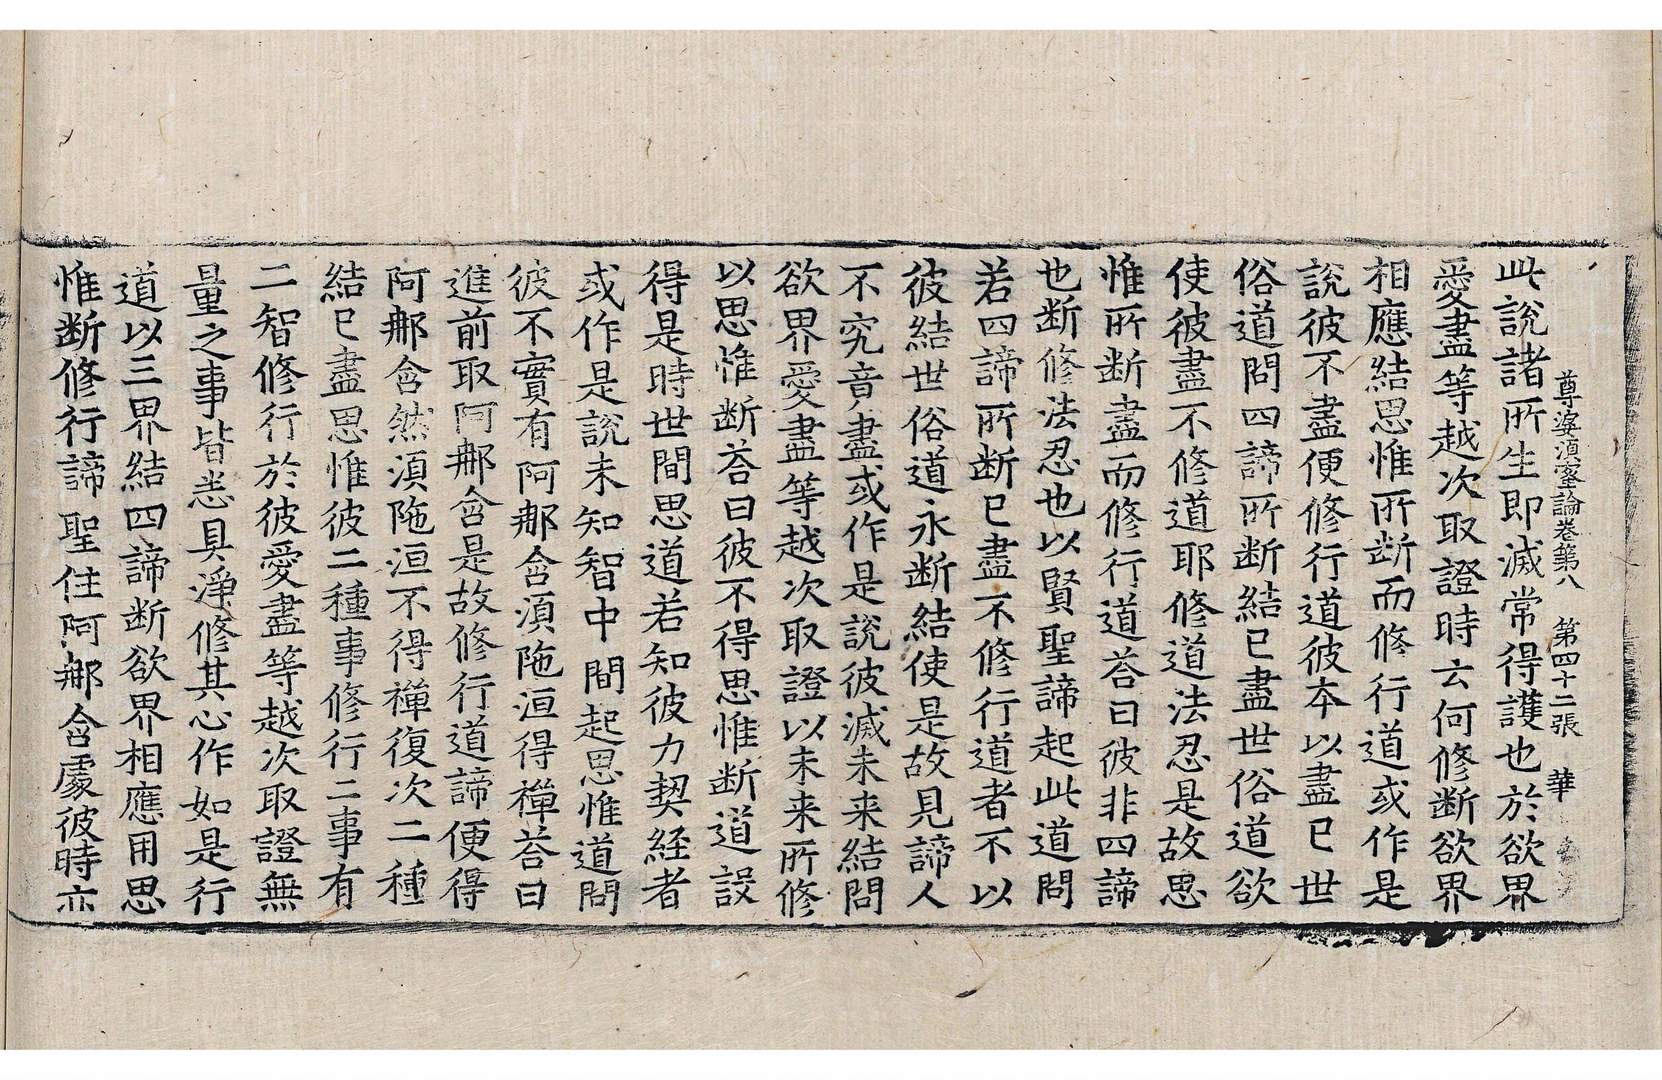 尊婆湏蜜論卷第八 第四十二張 華
此說諸所生即滅常得護也於欲界
愛盡等越次取證時云何修断欲界
相應結思惟所断而修行道或作是
說彼不盡便修行道彼本以盡已世
俗道問四諦所断結已盡世俗道欲
使彼盡不修道耶修道法忍是故思
惟所断盡而修行道荅曰彼非四諦
也断修法忍也以賢聖諦起此道問
若四諦所断已盡不修行道者不以
彼結世俗道永断結使是故見諦人
不究音盡或作是說彼滅未来結問
欲界愛盡等越次取證以未来所修
以思惟断荅曰彼不得思惟断道設
得是時世間思道若知彼力契経者
或作是說未知智中間起思惟道問
彼不實有阿那含湏陁洹得禅荅曰
進前取阿那含是故修行道諦便得
阿那含然湏陁洹不得禅復次二種
結已盡思惟彼二種事修行二事有
二智修行於彼愛盡等越次取證無
量之事皆悉具淨修其心作如是行
道以三界結四諦断欲界相應用思
惟断修行諦聖住阿那含處彼時亦